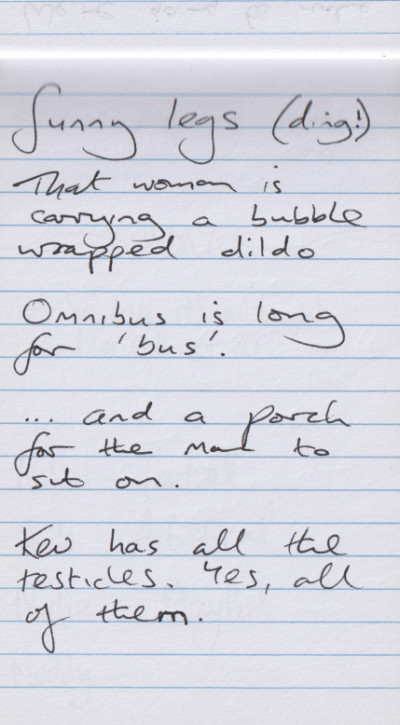 funny legs (ding!)
That woman is
carrying a bubble
wrapped dildo
Omnibus is long
for 'bus'.
... and a porch
for the man to
sit on.
Kev has all the
testicles. Yes, all
of them.